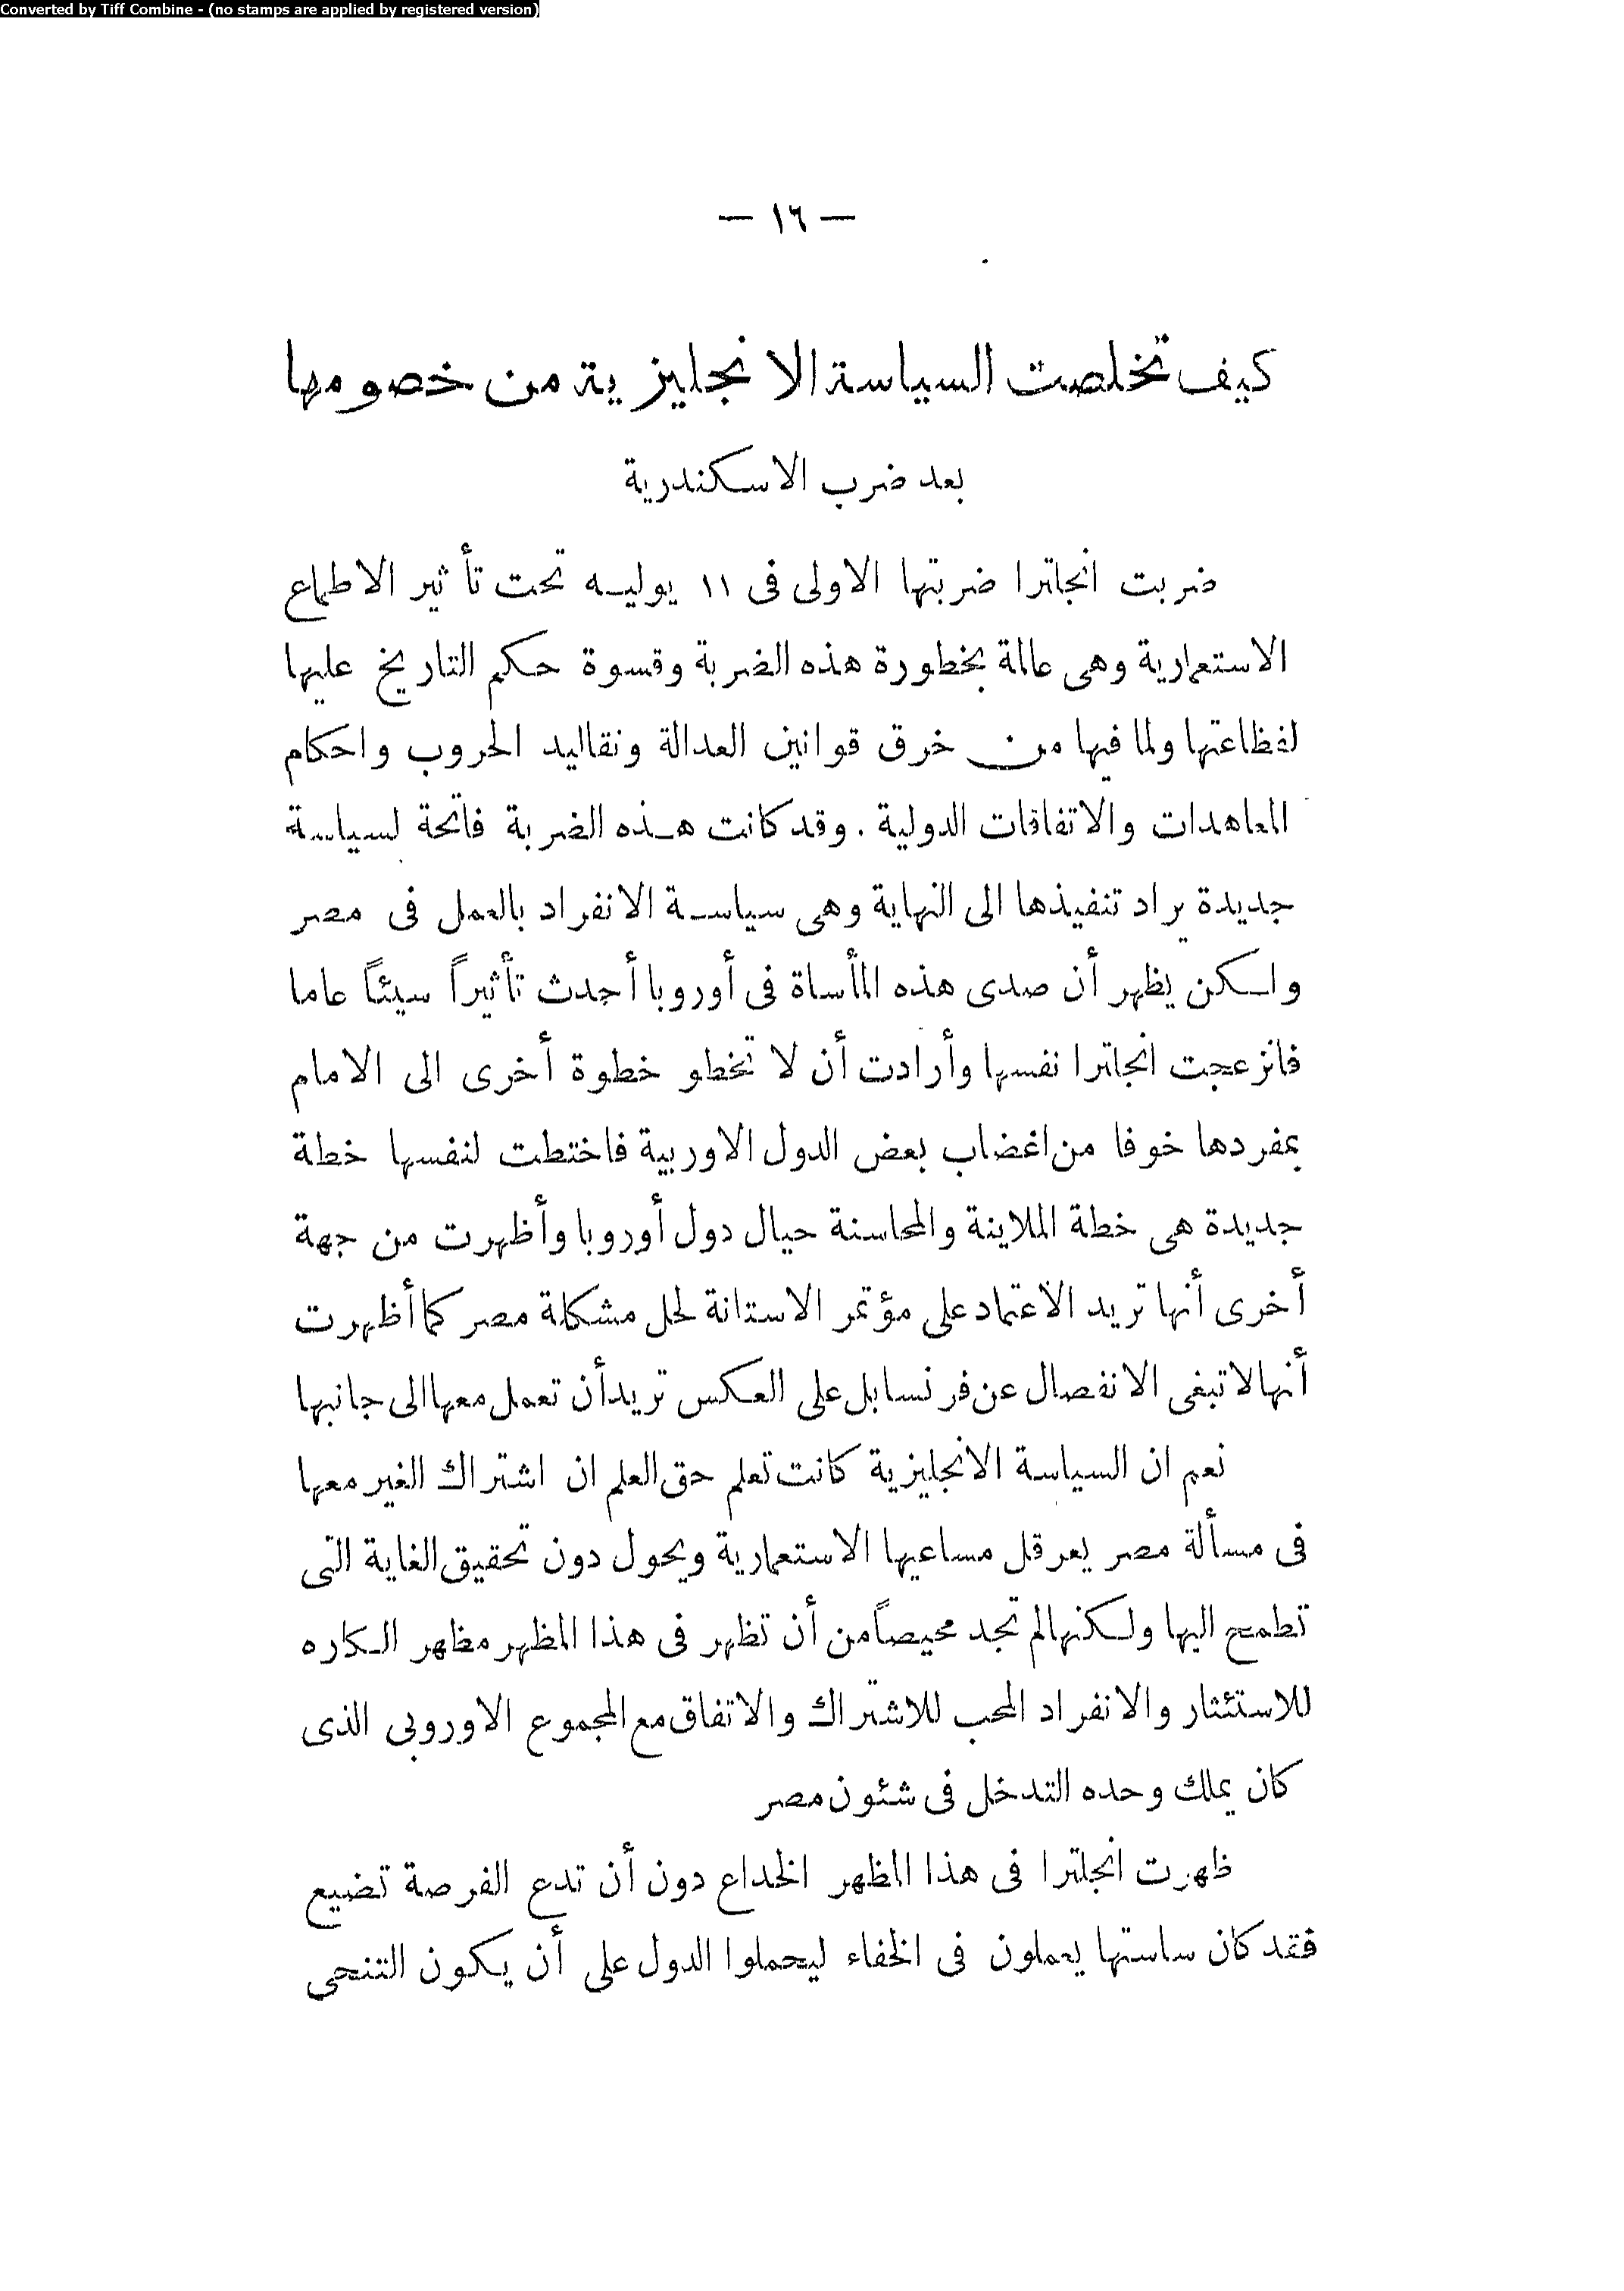 Converted by Tiff Combine - (no stamps are applied by registered version)
— ١٦ —
كيف تخلصت السياسة الانجليزية من خصومها
بعد ضرب الاسكندرية
ضربت انجلترا ضربتها الاولى فى ١١ يوليه تحت تأثير الاطماع
الاستعمارية وهى عالمة بخطورة هذه الضربة وقسوة حكم التاريخ عليها
لفظاعتها ولما فيها من خرق قوانين العدالة وتقاليد الحروب واحكام
المعاهدات والاتفاقات الدولية . وقد كانت هذه الضربة فاتحة لسياسة
جديدة يراد تنفيذها الى النهاية وهى سياسة الانفراد بالعمل فى مصر
ولكن يظهر أن صدى هذه المأساة فى أوروبا أحدث تأثيراً سيئاً عاما
فانزعجت انجلترا نفسها وأرادت أن لا تخطو خطوة أخرى الى الامام
بمفردها خوفا من اغضاب بعض الدول الاوربية فاختطت لنفسها خطة
جديدة هى خطة الملاينة والمحاسنة حيال دول أوروبا وأظهرت من جهة
أخرى أنها تريد الاعتماد على مؤتمر الاستانة لحل مشكلة مصر كما أظهرت
أنها لا تبغى الانفصال عن فرنسا بل على العكس تريد أن تعمل معها الى جانبها
نعم ان السياسة الانجليزية كانت تعلم حق العلم ان اشتراك الغير معها
فى مسألة مصر يعرقل مساعيها الاستعمارية ويحول دون تحقيق الغاية التى
تطمح اليها ولكنها لم تجد محيصاً من أن تظهر فى هذا المظهر مظهر الكاره
للاستئثار والانفراد المحب للاشتراك والاتفاق مع المجموع الاوروبى الذى
كان يملك وحده التدخل فى شئون مصر
ظهرت انجلترا فى هذا المظهر الخداع دون أن تدع الفرصة تضيع
فقد كان ساستها يعملون فى الخفاء ليحملوا الدول على أن يكون التنحى